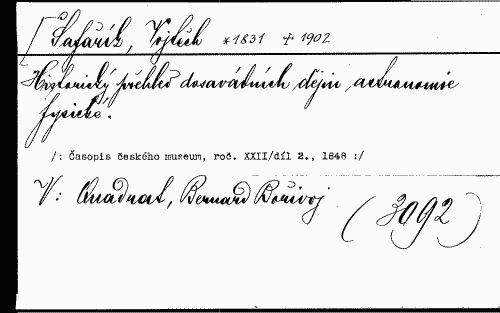 [Šafařík, Vojtěch *1831 +1902
Historický přehled dosavátních dějin astronomie
fysické.
/: Časopis českého museum, roč. XXII/díl 2., 1848 :/
V: Quadrat, Bernard Bořivoj
(3092)